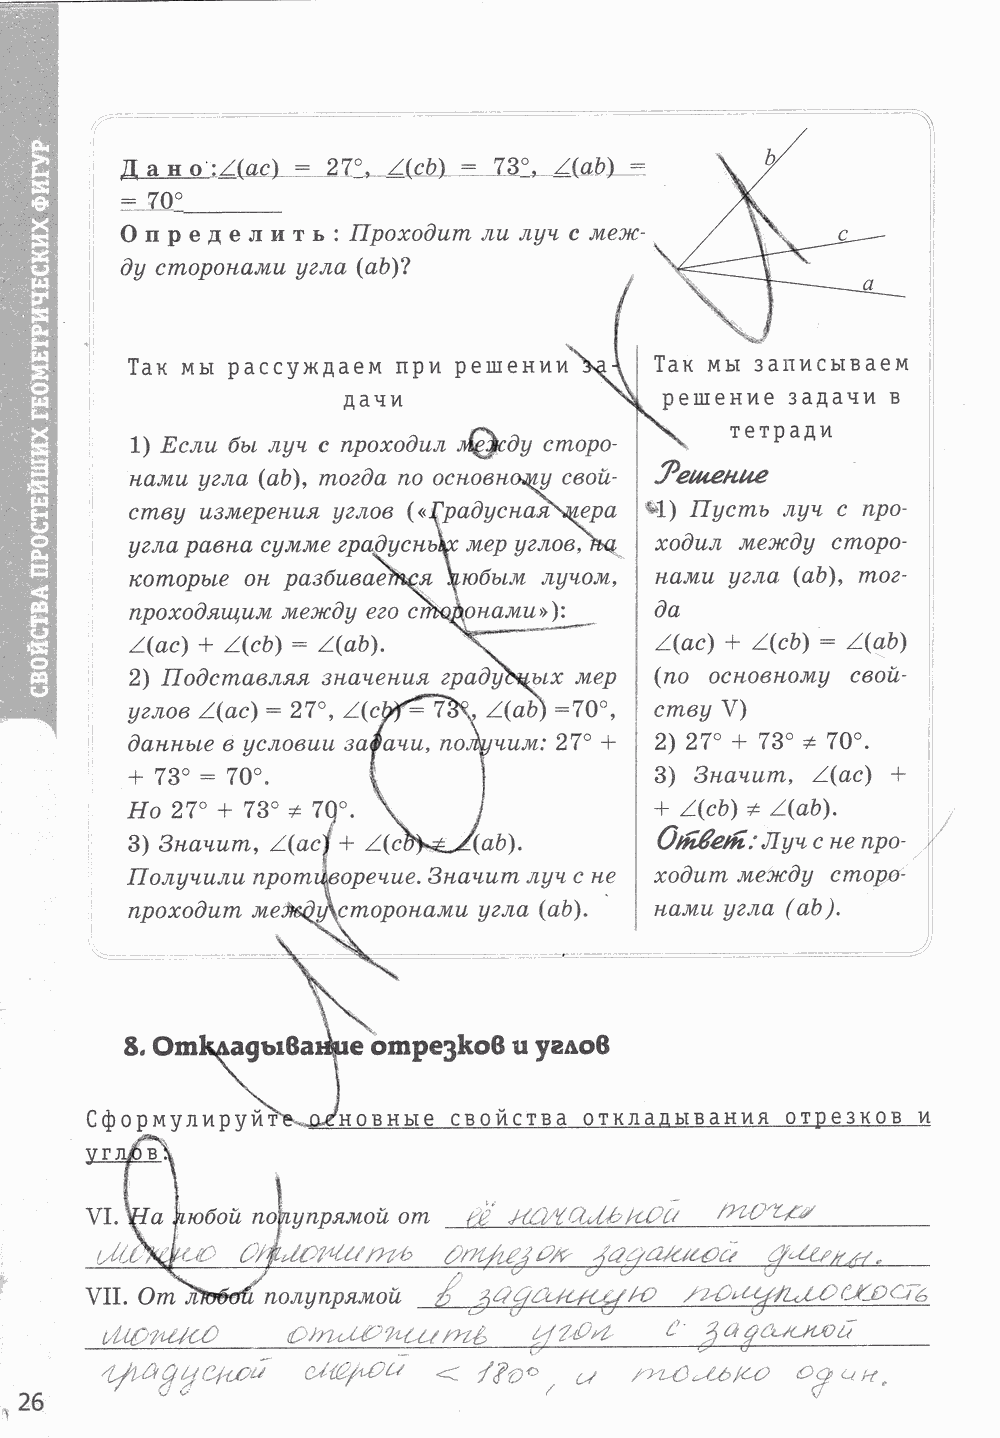 СВОЙСТВА ПРОСТЕЙШИХ ГЕОМЕТРИЧЕСКИХ ФИГУР
Дано: ∠(ac) = 27°, ∠(cb) = 73°, ∠(ab) =
= 70°
Определить: Проходит ли луч c меж-
ду сторонами угла (ab)?
b
c
a
Так мы рассуждаем при решении за-
дачи
1) Если бы луч c проходил между сторо-
нами угла (ab), тогда по основному свой-
ству измерения углов («Градусная мера
угла равна сумме градусных мер углов, на
которые он разбивается любым лучом,
проходящим между его сторонами»):
∠(ac) + ∠(cb) = ∠(ab).
2) Подставляя значения градусных мер
углов ∠(ac) = 27°, ∠(cb) = 73°, ∠(ab) =70°,
данные в условии задачи, получим: 27° +
+ 73° = 70°.
Но 27° + 73° ≠ 70°.
3) Значит, ∠(ac) + ∠(cb) ≠ ∠(ab).
Получили противоречие. Значит луч c не
проходит между сторонами угла (ab).
Так мы записываем
решение задачи в
тетради
Решение
1) Пусть луч c про-
ходил между сторо-
нами угла (ab), тог-
да
∠(ac) + ∠(cb) = ∠(ab)
(по основному свой-
ству V)
2) 27° + 73° ≠ 70°.
3) Значит, ∠(ac) +
+ ∠(cb) ≠ ∠(ab).
Ответ: Луч c не про-
ходит между сторо-
нами угла (ab).
8. Откладывание отрезков и углов
Сформулируйте основные свойства откладывания отрезков и
углов:
VI. На любой полупрямой от её начальной точки
можно отложить отрезок заданной длины.
VII. От любой полупрямой в заданную полуплоскость
можно отложить угол с заданной
градусной мерой < 180°, и только один.
26